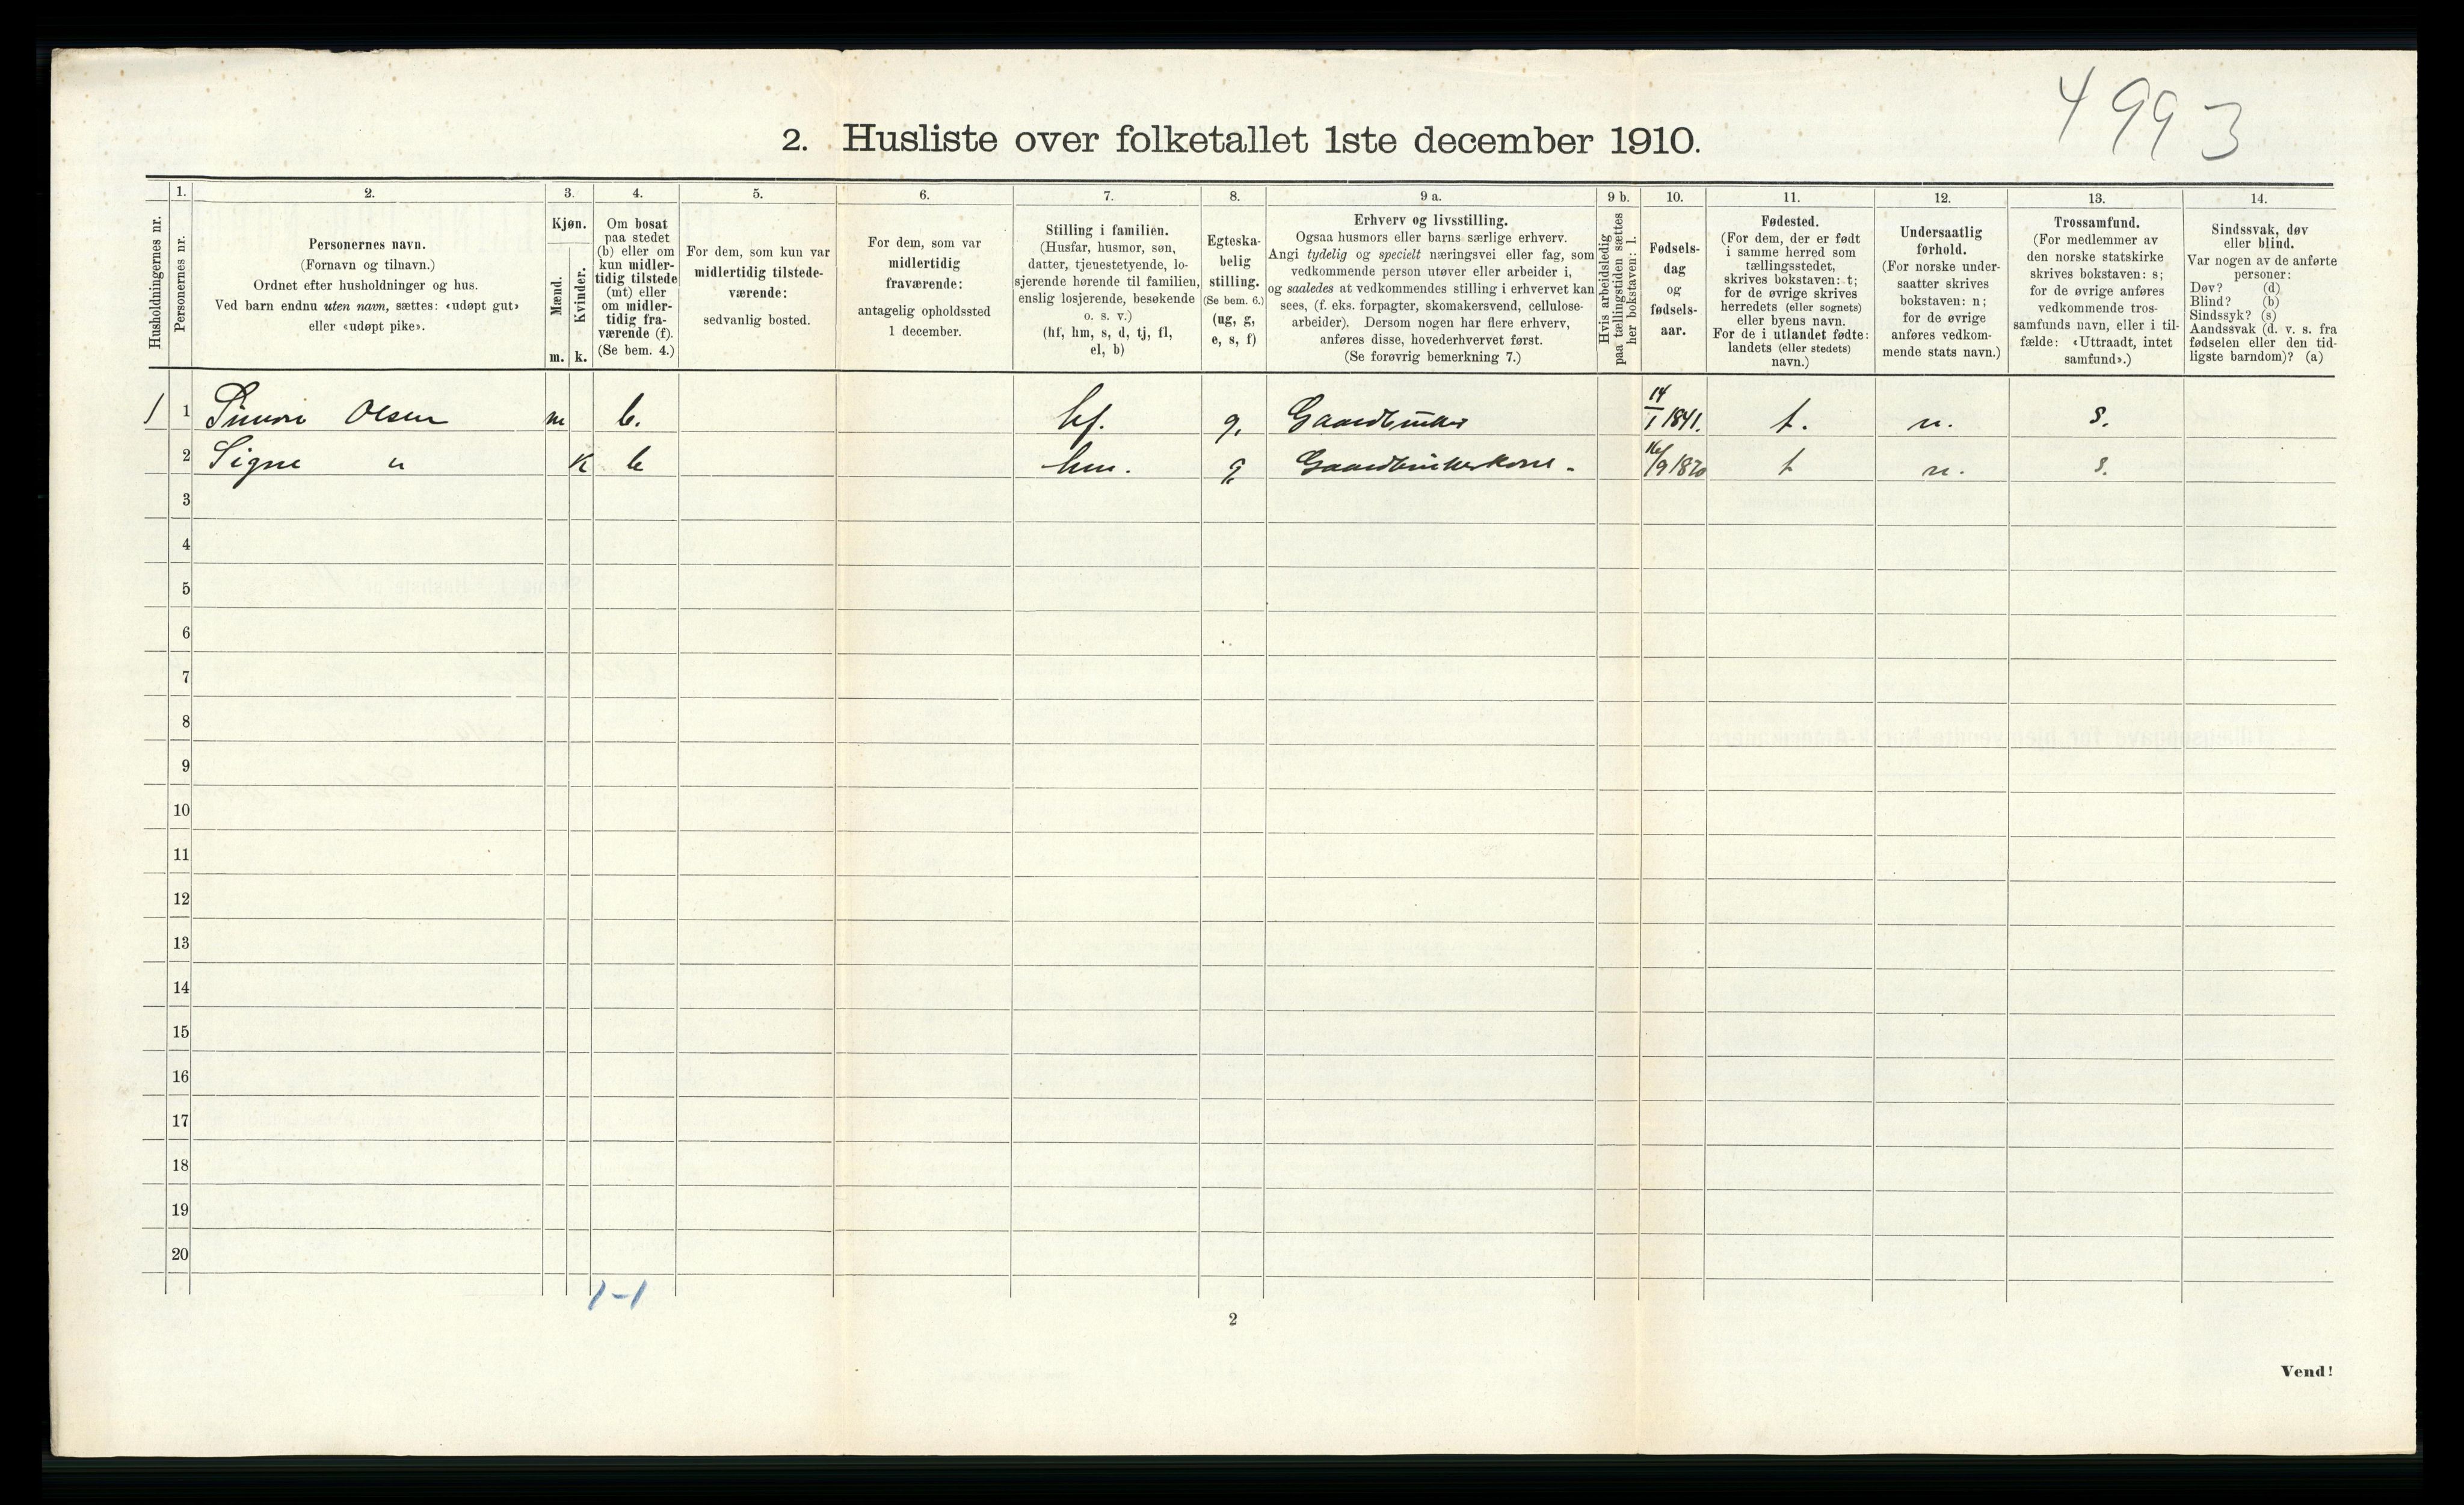 4993
2. Husliste over folketallet 1ste december 1910.
Husholdningernes nr.
1.
Personernes nr.
2.
Personernes navn.
(Fornavn og tilnavn.)
Ordnet efter husholdninger og hus.
Ved barn endnu uten navn, sættes: «udøpt gut»
eller «udøpt pike».
3.
Kjøn.
Mænd.
m.
Kvinder.
k.
4.
Om bosat
paa stedet
(b) eller om
kun midler-
tidig tilstede
(mt) eller
om midler-
tidig fra-
værende (f).
(Se bem. 4.)
5.
For dem, som kun var
midlertidig tilstede-
værende:
sedvanlig bosted.
6.
For dem, som var
midlertidig
fraværende:
antagelig opholdssted
1 december.
7.
Stilling i familien.
(Husfar, husmor, søn,
datter, tjenestetyende, lo-
sjerende hørende til familien,
enslig losjerende, besøkende
o. s. v.)
(hf, hm, s, d, tj, fl,
el, b)
8.
Egteska-
belig
stilling.
(Se bem. 6.)
(ug, g,
e, s, f)
9 a.
Erhverv og livsstilling.
Ogsaa husmors eller barns særlige erhverv.
Angi tydelig og specielt næringsvei eller fag, som
vedkommende person utøver eller arbeider i,
og saaledes at vedkommendes stilling i erhvervet kan
sees, (f. eks. forpagter, skomakersvend, cellulose-
arbeider). Dersom nogen har flere erhverv,
anføres disse, hovederhvervet først.
(Se forøvrig bemerkning 7.)
9 b.
Hvis arbeidsledig
paa tællingstiden sættes
her bokstaven: l.
10.
Fødsels-
dag
og
fødsels-
aar.
11.
Fødested.
(For dem, der er født
i samme herred som
tællingsstedet,
skrives bokstaven: t;
for de øvrige skrives
herredets (eller sognets)
eller byens navn.
For de i utlandet fødte:
landets (eller stedets)
navn.)
12.
Undersaatlig
forhold.
(For norske under-
saatter skrives
bokstaven: n;
for de øvrige
anføres vedkom-
mende stats navn.)
13.
Trossamfund.
(For medlemmer av
den norske statskirke
skrives bokstaven: s;
for de øvrige anføres
vedkommende tros-
samfunds navn, eller i til-
fælde: «Uttraadt, intet
samfund».)
14.
Sindssvak, døv
eller blind.
Var nogen av de anførte
personer:
Døv? (d)
Blind? (b)
Sindssyk? (s)
Aandssvak (d. v. s. fra
fødselen eller den tid-
ligste barndom)? (a)
1 1 Simon Olsen m b. hf. g. Gaardbruker 14/1 1841. t. n. s.
2 Signe " k b hm. g Gaardbrukerkone - 16/9 1820 t n. s.
3
4
5
6
7
8
9
10
11
12
13
14
15
16
17
18
19
20
1-1
2
Vend!